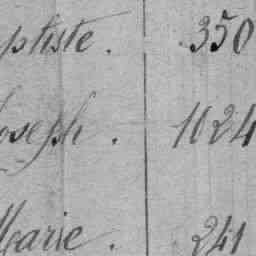 ptiste. 350
Joseph. 1024
Marie. 241